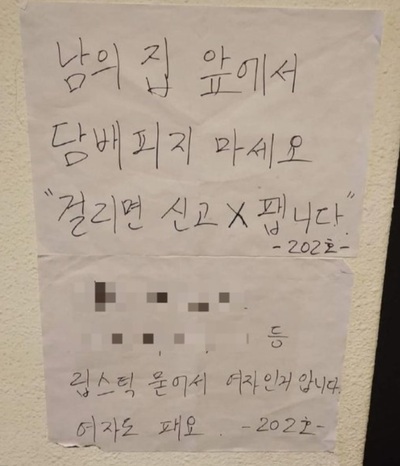 남의 집 앞에서
담배피지 마세요
"걸리면 신고 X 팹니다"
-202호-
등
립스틱 묻어서 여자인거 압니다.
여자도 패요. -202호-